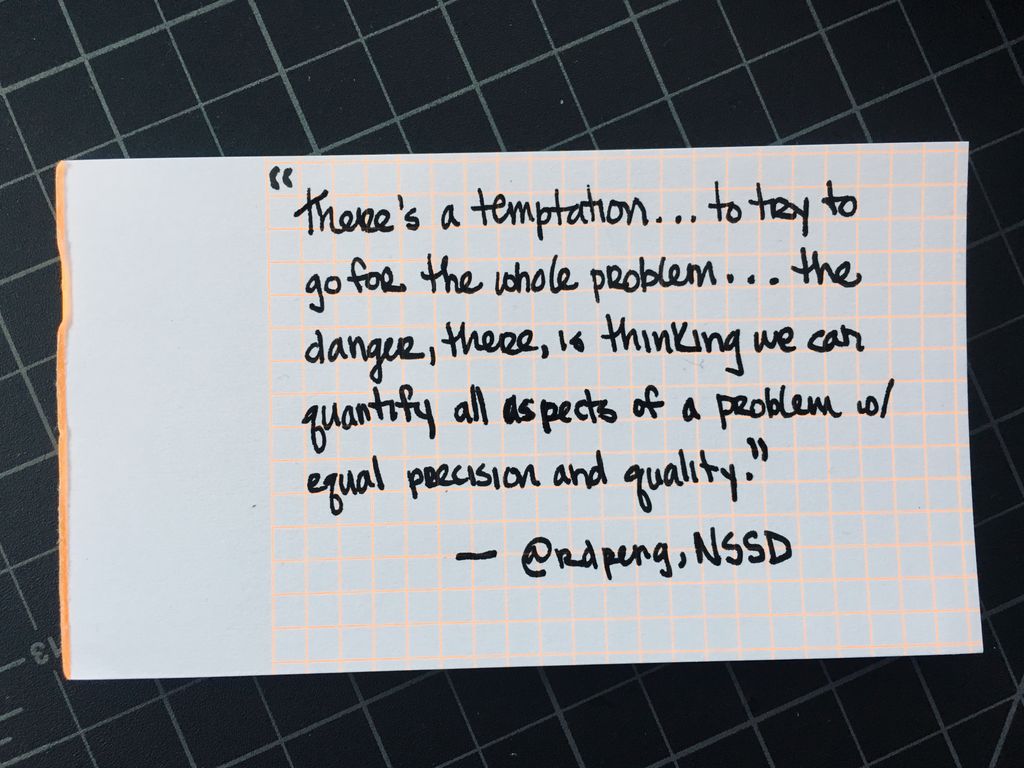 “There's a temptation... to try to
go for the whole problem... the
danger, there, is thinking we can
quantify all aspects of a problem w/
equal precision and quality.”
— @rdpeng, NSSD
13